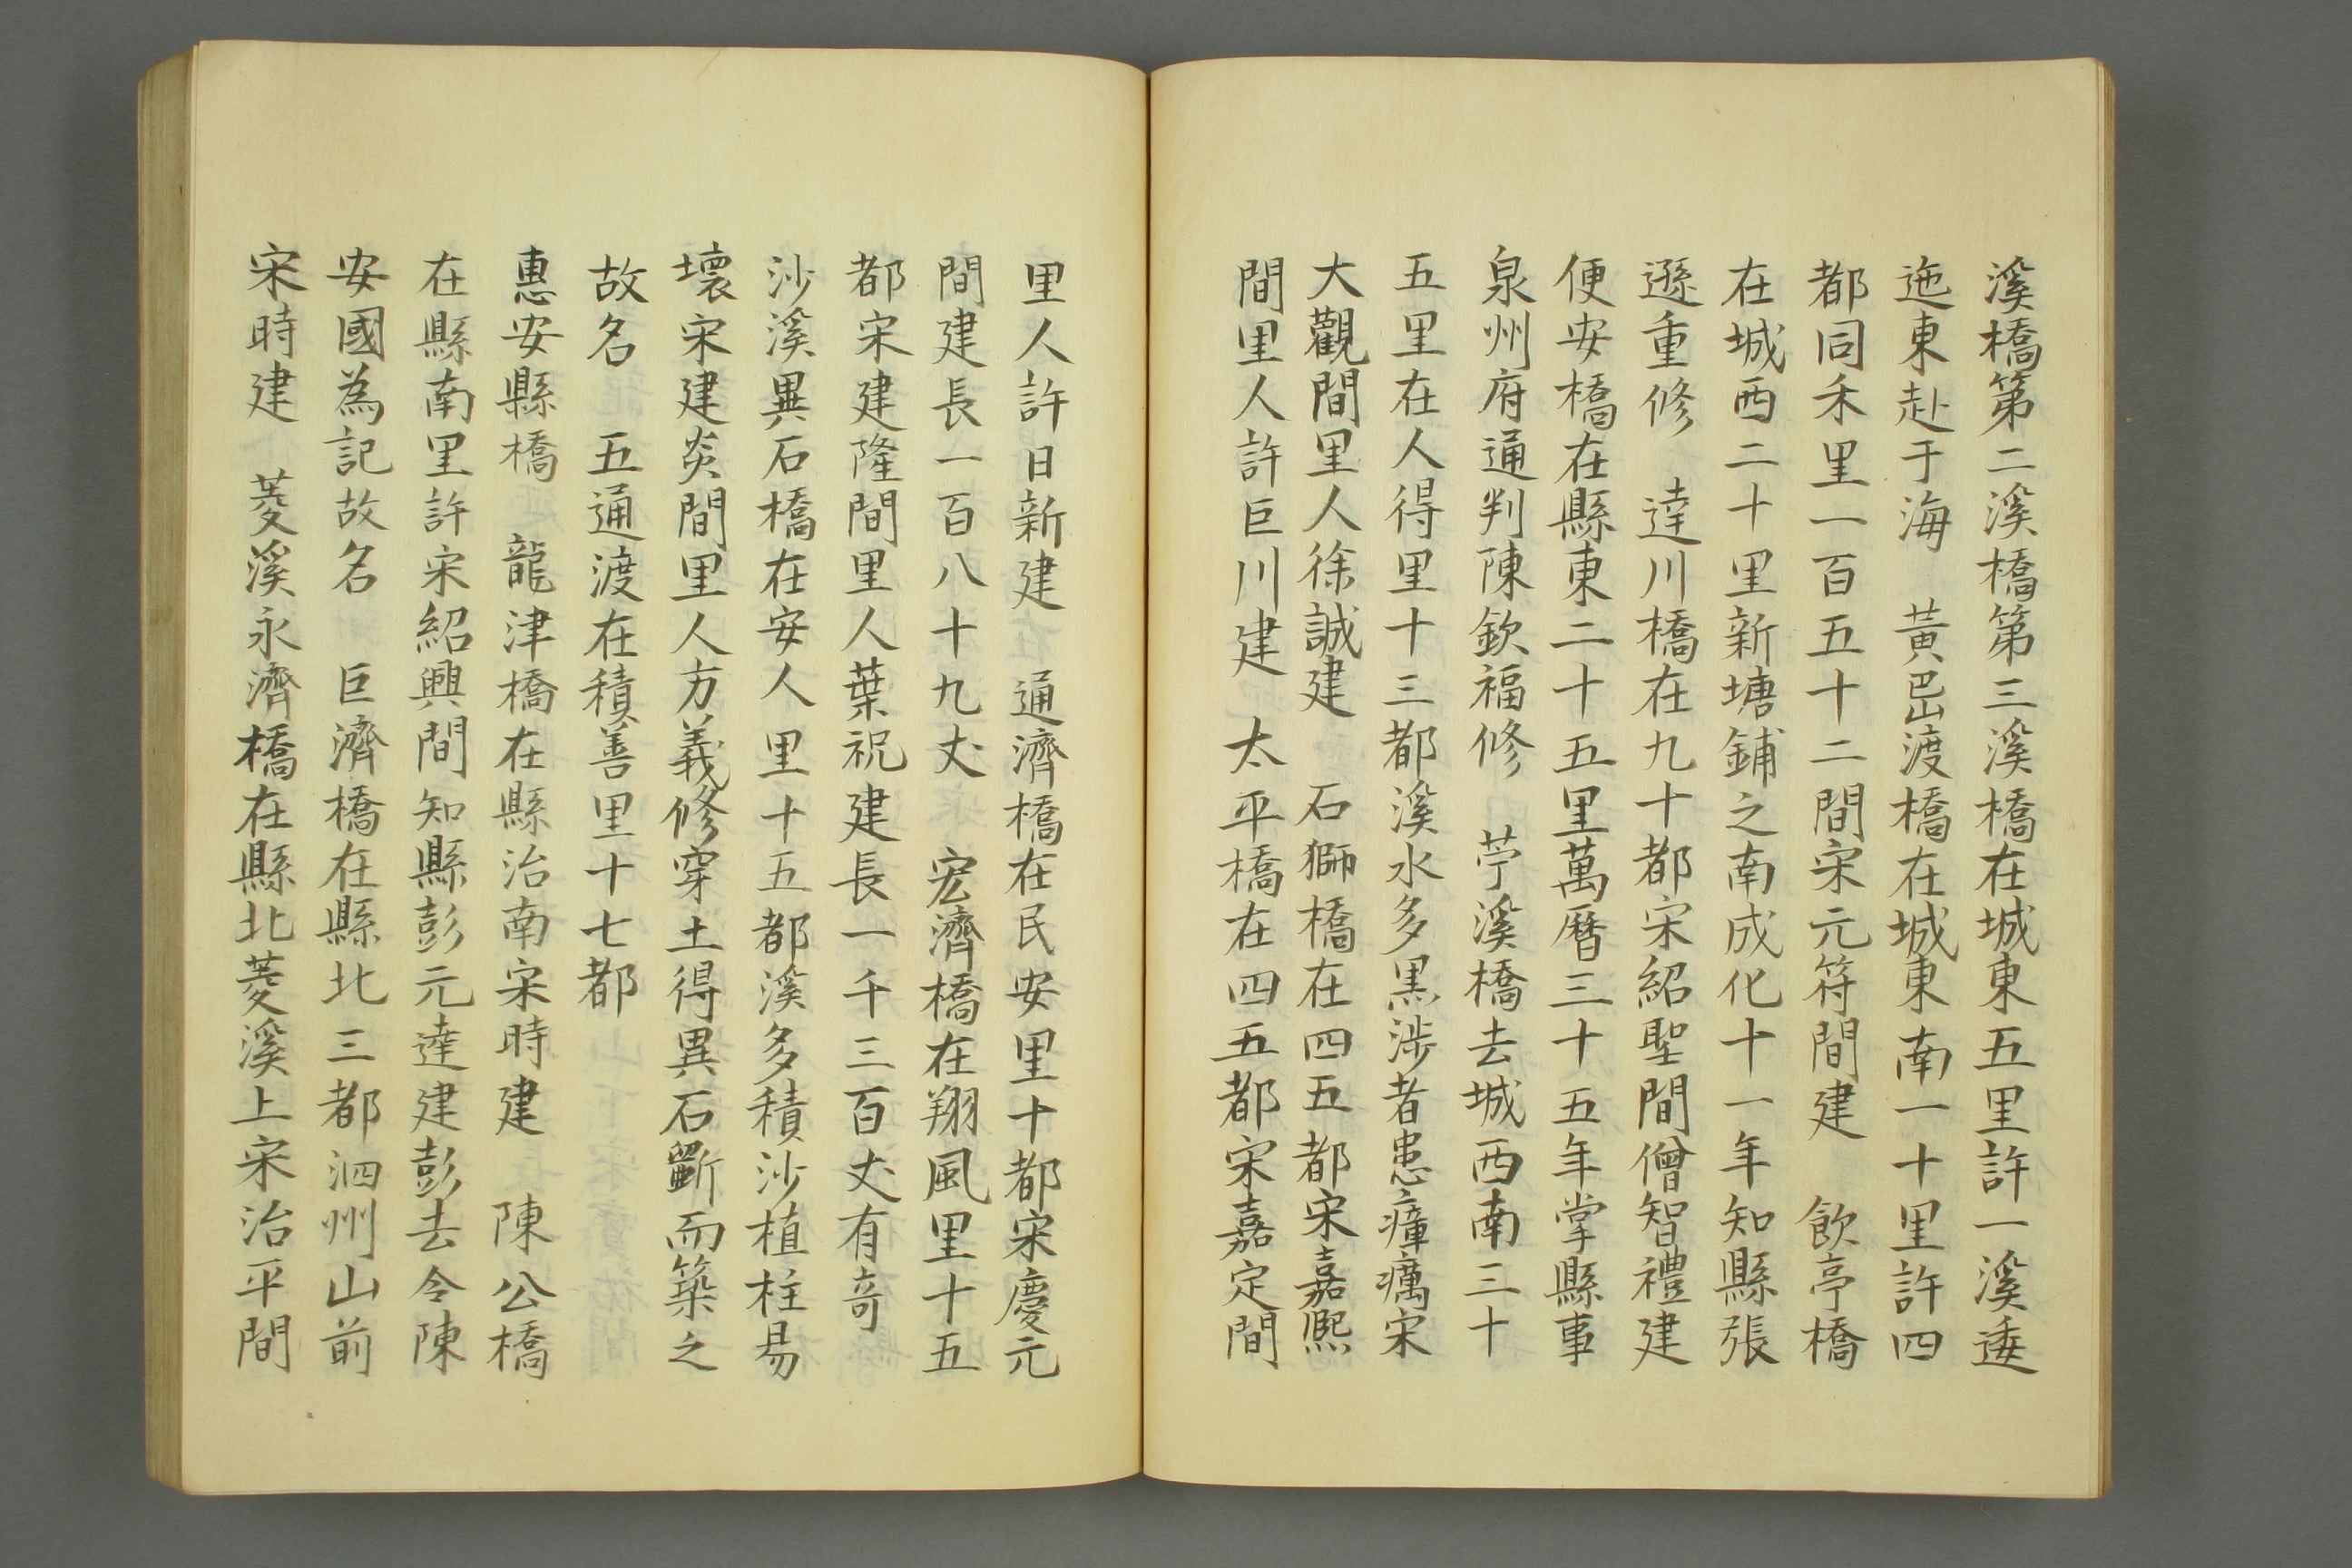 溪橋第二溪橋第三溪橋在城東五里許一溪逶
迤東赴于海　黃岊渡橋在城東南一十里許四
都同禾里一百五十二間宋元符間建　飲亭橋
在城西二十里新塘鋪之南成化十一年知縣張
遜重修　達川橋在九十都宋紹聖間僧智禮建
便安橋在縣東二十五里萬曆三十五年掌縣事
泉州府通判陳欽福修　苧溪橋去城西南三十
五里在人得里十三都溪水多黑涉者患瘴癘宋
大觀間里人徐誠建　石獅橋在四五都宋嘉熙
間里人許巨川建　太平橋在四五都宋嘉定間
里人許日新建　通濟橋在民安里十都宋慶元
間建長一百八十九丈　宏濟橋在翔風里十五
都宋建隆間里人葉祝建長一千三百丈有奇
沙溪異石橋在安人里十五都溪多積沙植柱易
壞宋建炎間里人方義修穿土得異石斵而築之
故名　五通渡在積善里十七都
惠安縣橋　龍津橋在縣治南宋時建　陳公橋
在縣南里許宋紹興間知縣彭元達建彭去令陳
安國為記故名　巨濟橋在縣北三都泗州山前
宋時建　菱溪永濟橋在縣北菱溪上宋治平間